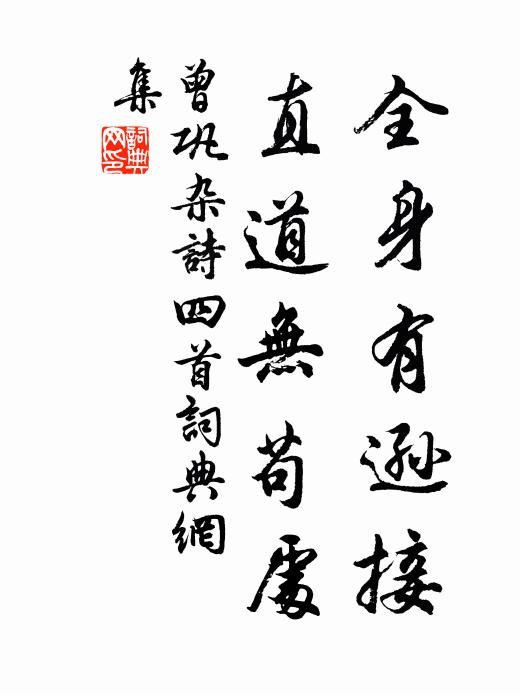 全身有遜接
直道無苟處
曾巩杂詩四首詞典網
集
詞典網印